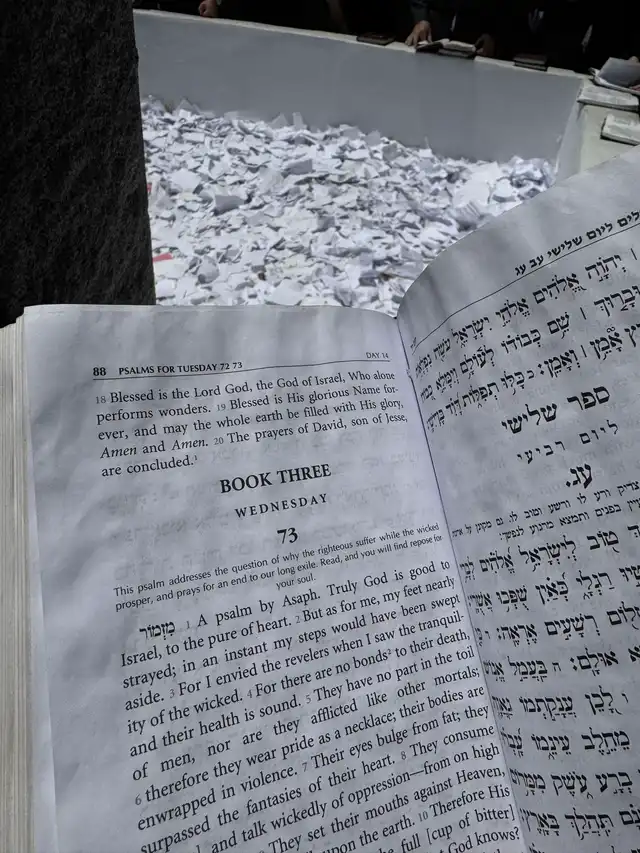 88 PSALMS FOR TUESDAY 72 73 DAY 14
18 Blessed is the Lord God, the God of Israel, Who alone
performs wonders. 19 Blessed is His glorious Name for-
ever, and may the whole earth be filled with His glory,
Amen and Amen. 20 The prayers of David, son of Jesse,
are concluded.¹
BOOK THREE
WEDNESDAY
73
This psalm addresses the question of why the righteous suffer while the wicked
prosper, and prays for an end to our long exile. Read, and you will find repose for
your soul.
מִזְמוֹר 1 A psalm by Asaph. Truly God is good to
Israel, to the pure of heart. 2 But as for me, my feet nearly
strayed; in an instant my steps would have been swept
aside. 3 For I envied the revelers when I saw the tranquil-
ity of the wicked. 4 For there are no bonds² to their death,
and their health is sound. 5 They have no part in the toil
of men, nor are they afflicted like other mortals;
6 therefore they wear pride as a necklace; their bodies are
enwrapped in violence. 7 Their eyes bulge from fat; they
surpassed the fantasies of their heart. 8 They consume
and talk wickedly of oppression—from on high
They set their mouths against Heaven,
upon the earth. 10 Therefore His
the full [cup of bitter]
God knows?
לים ליום שלישי עב עג
יְהוָה אֱלֹהִים אֱלֹהֵי יִשְׂרָאֵל
שֵׁם כְּבוֹדוֹ לְעוֹלָם וְיִמָּלֵא
אָמֵן וְאָמֵן: כ כָּלּוּ תְפִלּוֹת דָּוִד
ספר שלישי
ליום רביעי
עג.
צדיק ורע לו ורשע וטוב לו
טוֹב לְיִשְׂרָאֵל אֱלֹהִים
רַגְלָי כְּאַיִן שֻׁפְּכוּ
רְשָׁעִים אֶרְאֶה:
אוּלָם: ה בַּעֲמַל
לָכֵן עֲנָקַתְמוֹ
מֵחֵלֶב עֵינֵמוֹ
בְרָע עֹשֶׁק מִמָּרוֹם
תִּהֲלַךְ בָּאָרֶץ